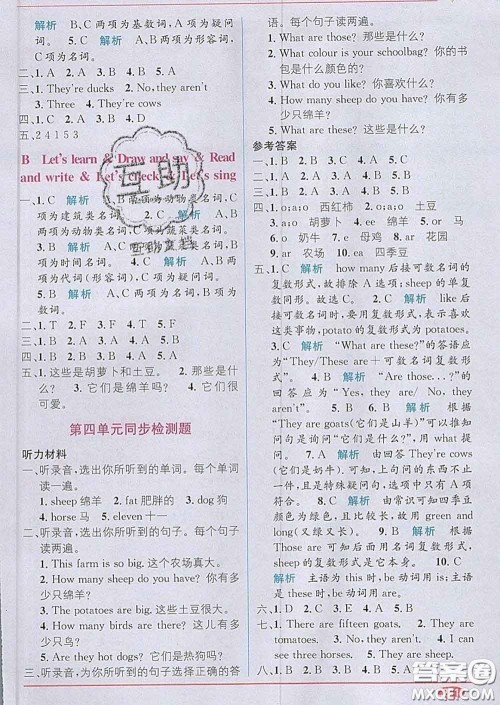 解析 B、C 两项为基数词,A 项为疑问
词。 4. C 解析 A、B 两项为形容词,C
项为名词。 5. C 解析 A、B 两项为形
容词,C 项为名词。
二、1. A 2. A 3. B 4. B 5. A
三、1. They're ducks 2. No, they aren't
3. Three 4. They're cows
四、1. C 2. A 3. B 4. B 5. A
五、2 4 1 5 3
B Let's learn & Draw and say & Read
and write & Let's check & Let's sing
一、1. C 解析 A、B 两项为动物类名词,C
项为建筑类名词。
两项为动物类名词。
为名词。
项为时间名词。 4. C 解析 A、B
两项为代词(形容词),C 项为疑问词。
5. B 解析 A、C 两项为名词。
二、1. T 2. T 3. F 4. F 5. T
三、1. B 2. A 3. B 4. A 5. B
四、1. B 2. A 3. B 4. A 5. B
五、1. 这些是胡萝卜和土豆。 2. 那些是什
么? 3. 它们是绵羊吗? 4. 它们很
可爱。
第四单元同步检测题
听力材料
一、听录音,选出你所听到的单词。每个单词
读一遍。
1. sheep 绵羊 2. fat 肥胖的 3. dog 狗
4. horse 马 5. eleven 十一
二、听录音,选出你所听到的句子。每个句子
读两遍。
1. This farm is so big. 这个农场真大。
2. How many sheep do you have? 你有多
少只绵羊?
3. The potatoes are big. 这些土豆很大。
4. How many birds are there? 那里有多
少只鸟?
5. Are they hot dogs? 它们是热狗吗?
三、听录音,选出你所听句子的正确的答
语。每个句子读两遍。
1. What are those? 那些是什么?
2. What colour is your schoolbag? 你的书
包是什么颜色的?
3. What do you like? 你喜欢什么?
4. How many sheep do you have? 你有多
少只绵羊?
5. What are these? 这些是什么?
参考答案
一、1. B 2. B 3. C 4. A 5. B
二、1. C 2. A 3. B 4. B 5. A
三、1. B 2. C 3. A 4. C 5. A
四、1. o;a;o 西红柿 2. o;a;o 土豆
3. a;o 胡萝卜 4. ee 绵羊 5. or 马
6. o 奶牛 7. e 母鸡 8. ar 花园
9. ar 农场 10. ea 四季豆
五、1. C 解析 how many 后接可数名词的
复数形式,故排除 A 选项;sheep 的单复
数同形。故选 C。 2. C 解析 like 后
接可数名词时,要用复数形式,表示喜欢
这类事物,potato 的复数形式为 potatoes。
3. C 4. B 解析 "What are these?"的答语应
为"They/These are+可数名词复数形
式"。 5. B 解析 "Are those...?"的
回答应为 "Yes, they are/ No, they
aren't"。 6. B 解析 根据
"They(These) are cows(它们(这些)是
奶牛)"的回答可以推出
问句是询问"它们是什么",要用 what 提
问。 7. B 解析 由答语"They are
cows(它们是奶牛)."可知,上句问的东西不止
一件,且是特殊疑问句,故只有选项 A
符合。 8. C 解析 由常识可知四季豆
颜色为绿色,且比较长,故选 green and
long(又绿又长)。 9. B 解析 根据
Those are 可知应用名词复数形式,
sheep 的复数形式就是它本身。 10. C
解析 主语为 this 时,be 动词用 is;主
语为 these 时,be 动词用 are。
六、1. D 2. C 3. A 4. E 5. B
七、1. There are fifteen goats. 2. They are
tomatoes. 3. No, they aren't. 4. I can
see three horses. 5. They are sheep.
八、1. B 2. B 3. A 4. A 5. B
互助
互助文档
答案圈
MXQE.COM